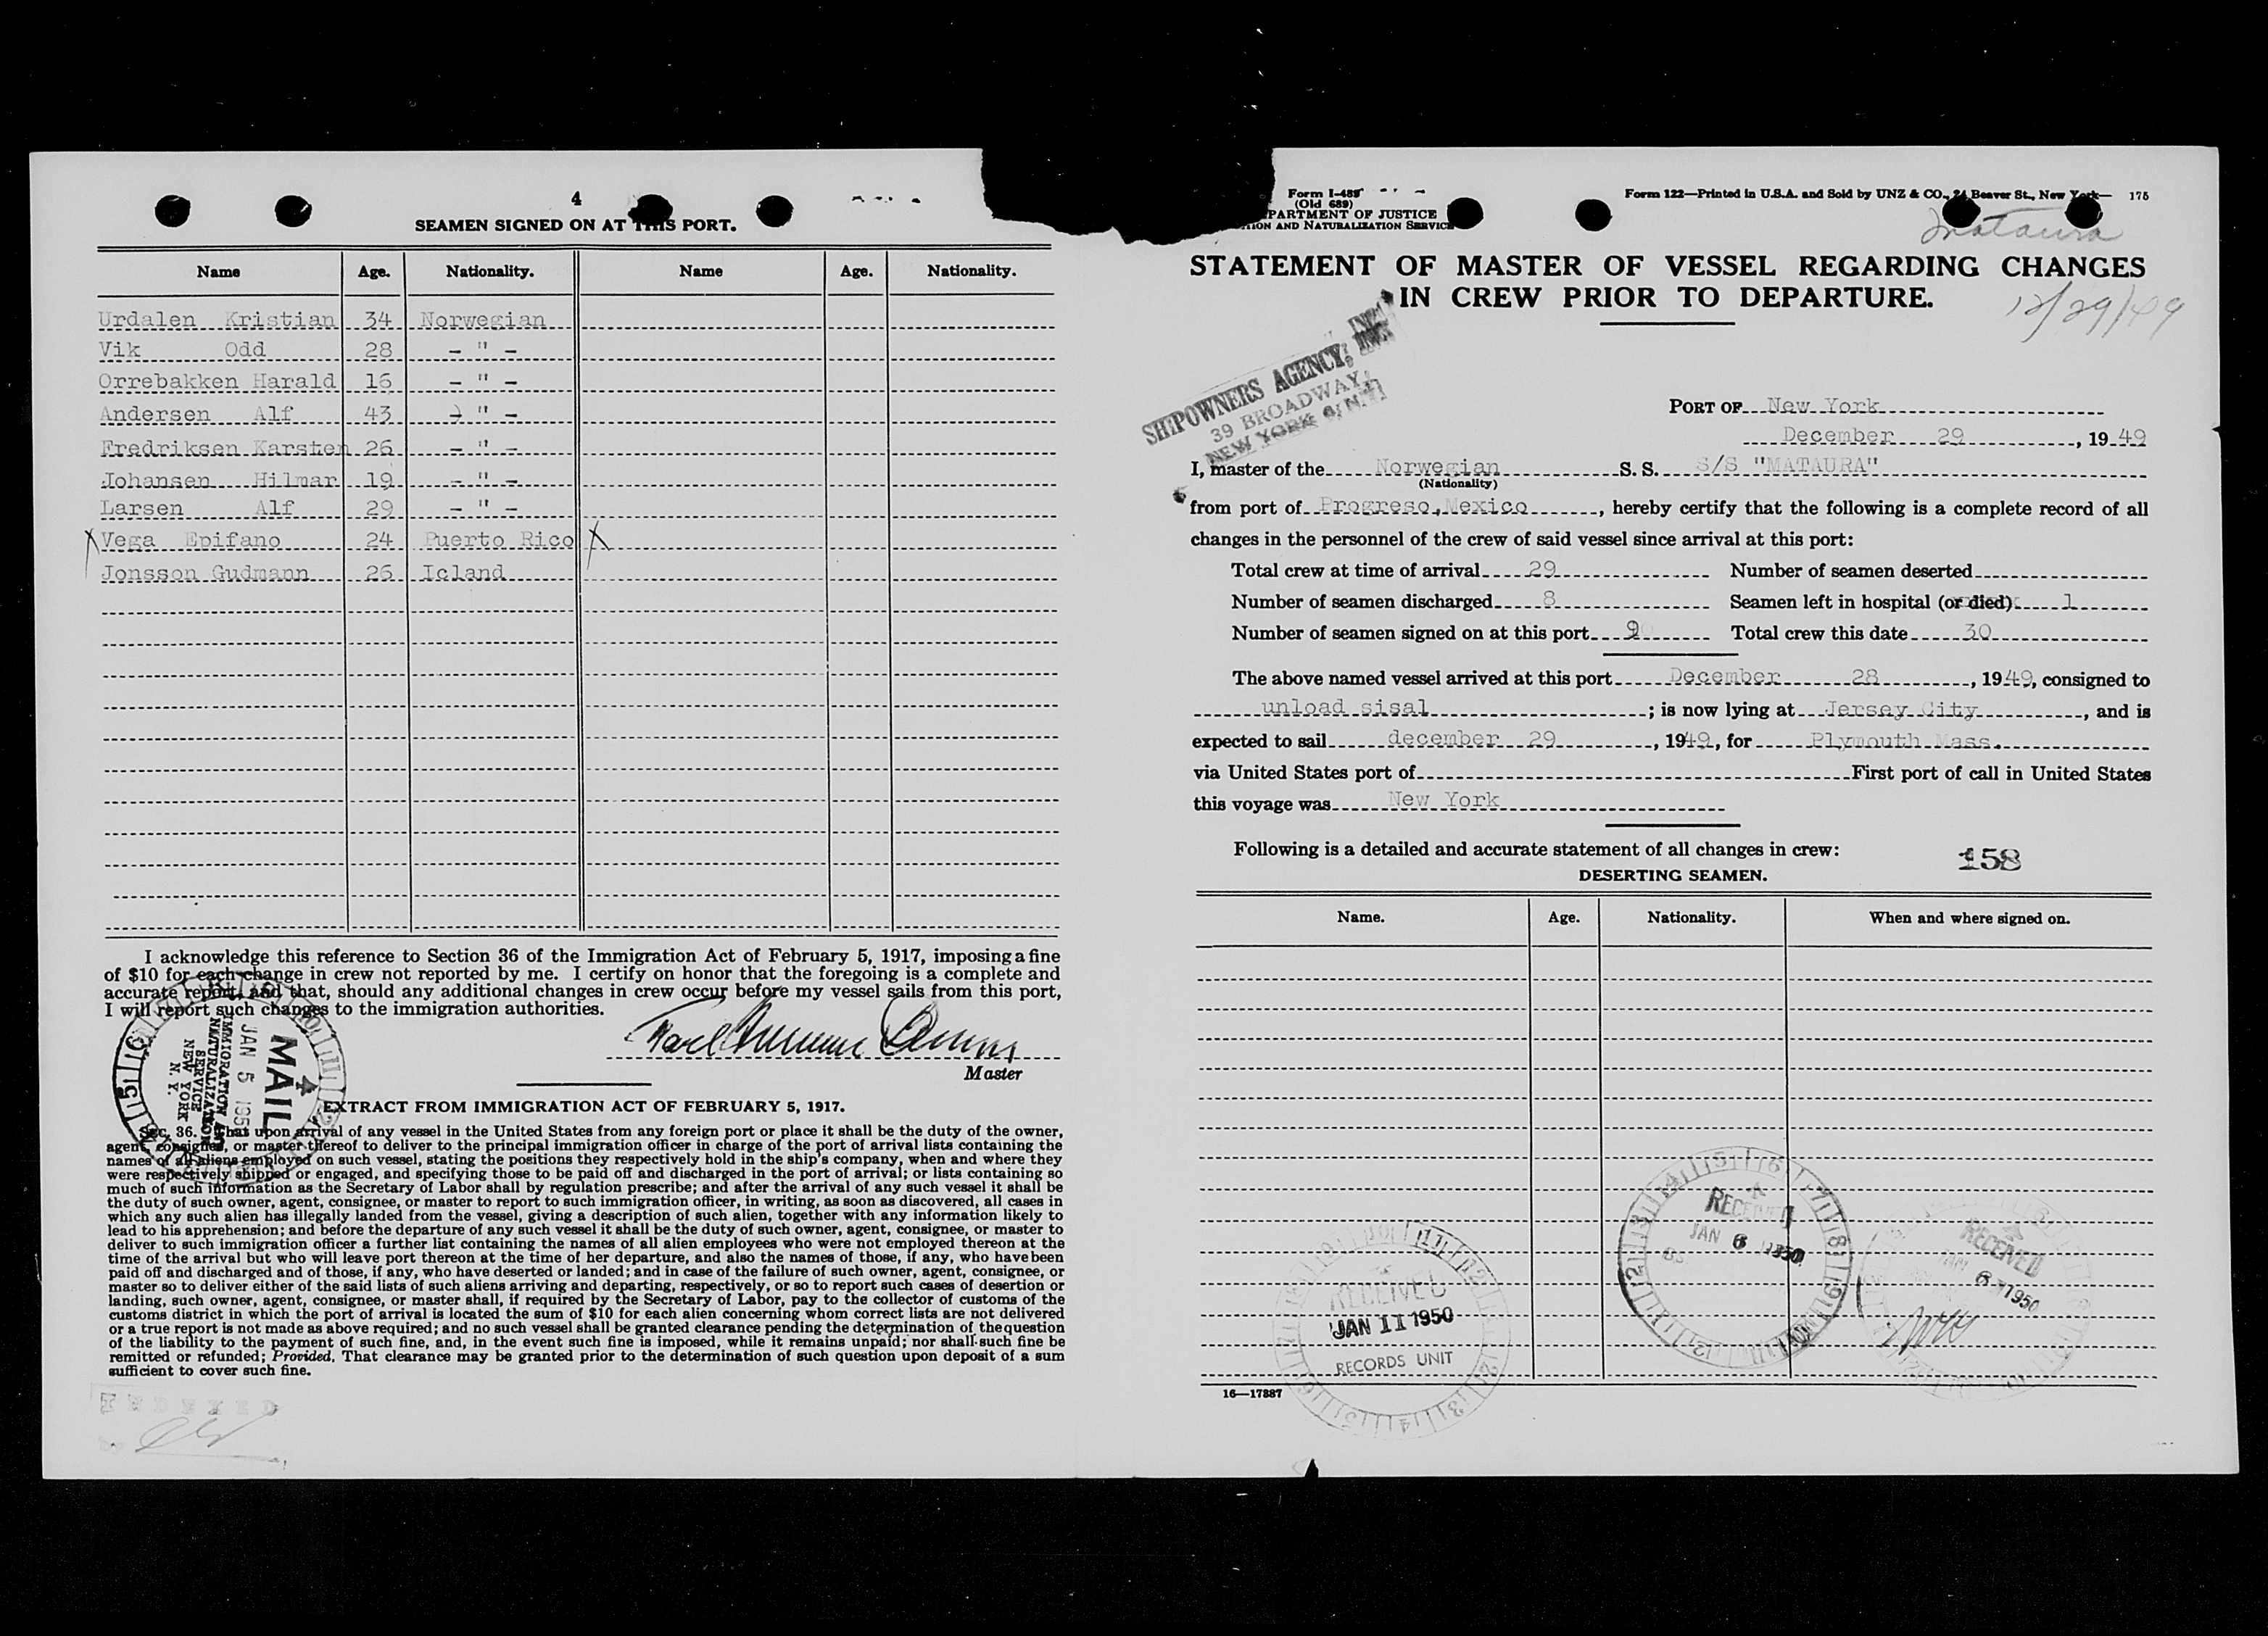 4
SEAMEN SIGNED ON AT THIS PORT.
Name Age. Nationality. Name Age. Nationality.
Urdalen Kristian 34 Norwegian
Vik Odd 28 - " -
Orrebakken Harald 16 - " -
Andersen Alf 43 - " -
Fredriksen Karsten 26 - " -
Johansen Hilmar 19 - " -
Larsen Alf 29 - " -
X Vega Epifano 24 Puerto Rico X
Jonsson Gudmann 26 Icland
I acknowledge this reference to Section 36 of the Immigration Act of February 5, 1917, imposing a fine
of $10 for each change in crew not reported by me. I certify on honor that the foregoing is a complete and
accurate report, and that, should any additional changes in crew occur before my vessel sails from this port,
I will report such changes to the immigration authorities.
Master
MAIL
JAN 5 195
IMMIGRATION AND
NATURALIZATION
SERVICE
NEW YORK
N. Y.
EXTRACT FROM IMMIGRATION ACT OF FEBRUARY 5, 1917.
Sec. 36. That upon arrival of any vessel in the United States from any foreign port or place it shall be the duty of the owner,
agent, consignee, or master thereof to deliver to the principal immigration officer in charge of the port of arrival lists containing the
names of all aliens employed on such vessel, stating the positions they respectively hold in the ship's company, when and where they
were respectively shipped or engaged, and specifying those to be paid off and discharged in the port of arrival; or lists containing so
much of such information as the Secretary of Labor shall by regulation prescribe; and after the arrival of any such vessel it shall be
the duty of such owner, agent, consignee, or master to report to such immigration officer, in writing, as soon as discovered, all cases in
which any such alien has illegally landed from the vessel, giving a description of such alien, together with any information likely to
lead to his apprehension; and before the departure of any such vessel it shall be the duty of such owner, agent, consignee, or master to
deliver to such immigration officer a further list containing the names of all alien employees who were not employed thereon at the
time of the arrival but who will leave port thereon at the time of her departure, and also the names of those, if any, who have been
paid off and discharged and of those, if any, who have deserted or landed; and in case of the failure of such owner, agent, consignee, or
master so to deliver either of the said lists of such aliens arriving and departing, respectively, or so to report such cases of desertion or
landing, such owner, agent, consignee, or master shall, if required by the Secretary of Labor, pay to the collector of customs of the
customs district in which the port of arrival is located the sum of $10 for each alien concerning whom correct lists are not delivered
or a true report is not made as above required; and no such vessel shall be granted clearance pending the determination of the question
of the liability to the payment of such fine, and, in the event such fine is imposed, while it remains unpaid; nor shall such fine be
remitted or refunded; Provided, That clearance may be granted prior to the determination of such question upon deposit of a sum
sufficient to cover such fine.
INDEXED
by
Form I-489
(Old 689)
PARTMENT OF JUSTICE
TION AND NATURALIZATION SERVICE
Form 122—Printed in U.S.A. and Sold by UNZ & CO., 24 Beaver St., New York— 175
Mataura
STATEMENT OF MASTER OF VESSEL REGARDING CHANGES
IN CREW PRIOR TO DEPARTURE.
12/29/49
SHIPOWNERS AGENCY, INC.
39 BROADWAY,
NEW YORK 6, N.Y.
PORT OF New York
December 29, 1949
I, master of the Norwegian S. S. S/S "MATAURA"
(Nationality)
from port of Progreso, Mexico, hereby certify that the following is a complete record of all
changes in the personnel of the crew of said vessel since arrival at this port:
Total crew at time of arrival 29 Number of seamen deserted
Number of seamen discharged 8 Seamen left in hospital (or died) 1
Number of seamen signed on at this port 9 Total crew this date 30
The above named vessel arrived at this port December 28, 1949, consigned to
unload sisal; is now lying at Jersey City, and is
expected to sail december 29, 1949, for Plymouth Mass.
via United States port of First port of call in United States
this voyage was New York
Following is a detailed and accurate statement of all changes in crew:
158
DESERTING SEAMEN.
Name. Age. Nationality. When and where signed on.
RECEIVED
JAN 6 1950
RECEIVED
JAN 6 1950
RECEIVED
JAN 11 1950
RECORDS UNIT
16—17887